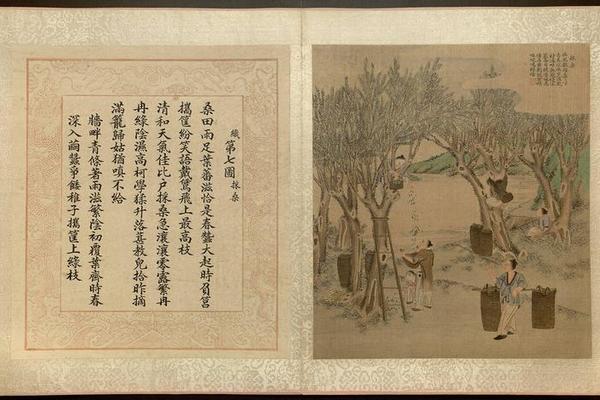 織第七圖 採桑
桑田雨足葉蕃滋恰是春蠶大起時負筥
攜筐紛笑語戴鵀飛上最高枝
清和天氣佳比户採桑急瀼瀼零露繁冉
冉綠陰濕高柯學猱升落葚教兒拾昨摘
滿籠歸姑猶嗔不給
牆畔青條著雨滋繁陰初覆葉齊時春
深入繭蠶爭餧稚子攜筐上綠枝
採桑